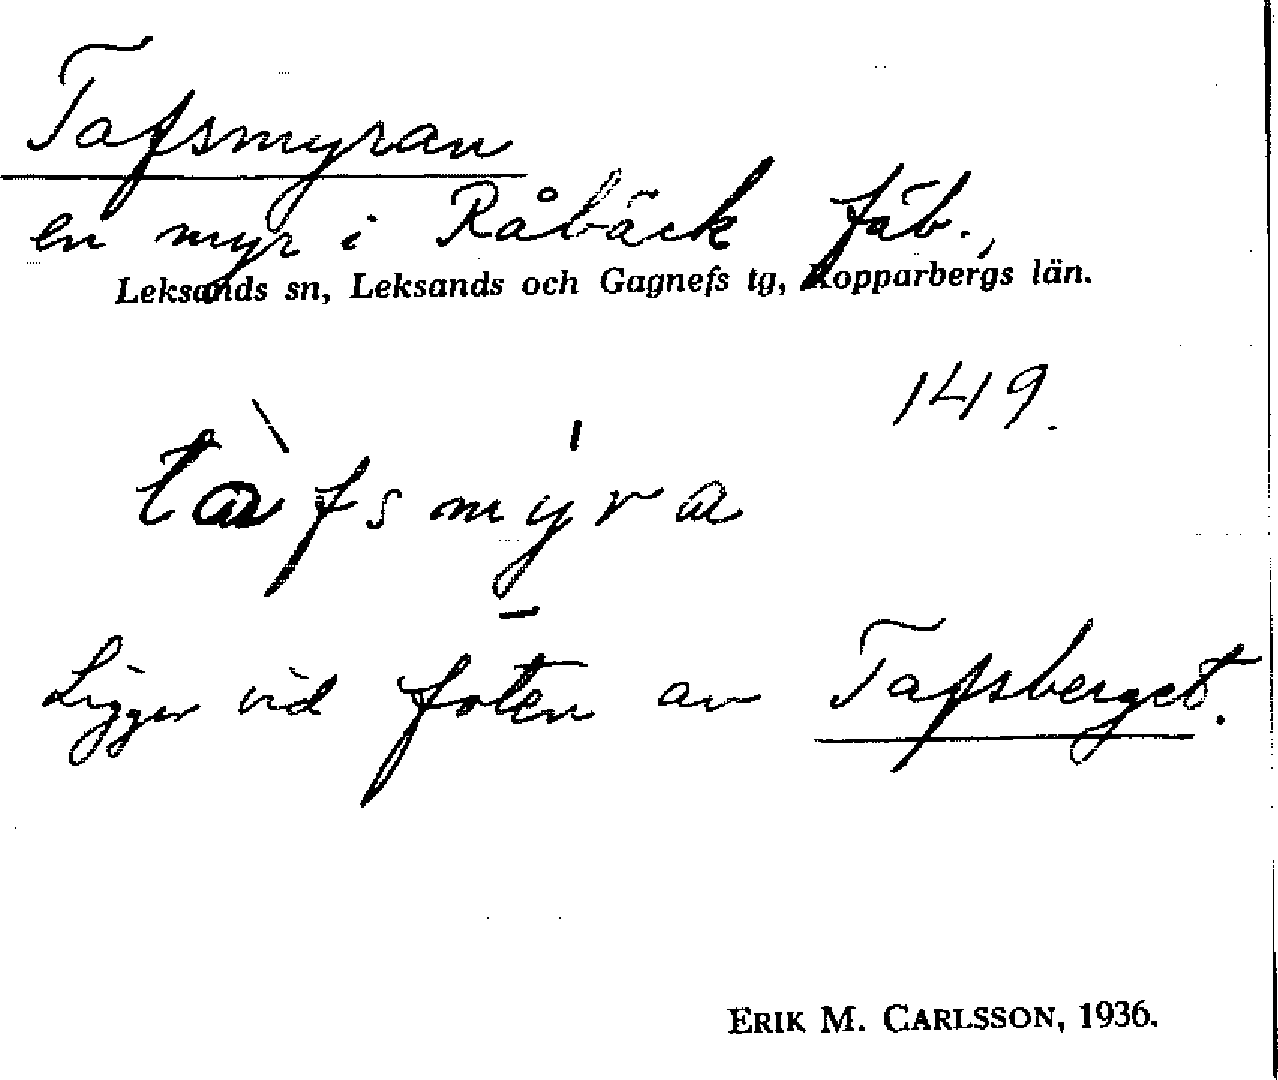 Tafsmyran
en myr i Råbäck fäb.,
Leksands sn, Leksands och Gagnefs tg, Kopparbergs län.
149.
tàfsmýra
Ligger vid foten av Tafsberget.
ERIK M. CARLSSON, 1936.